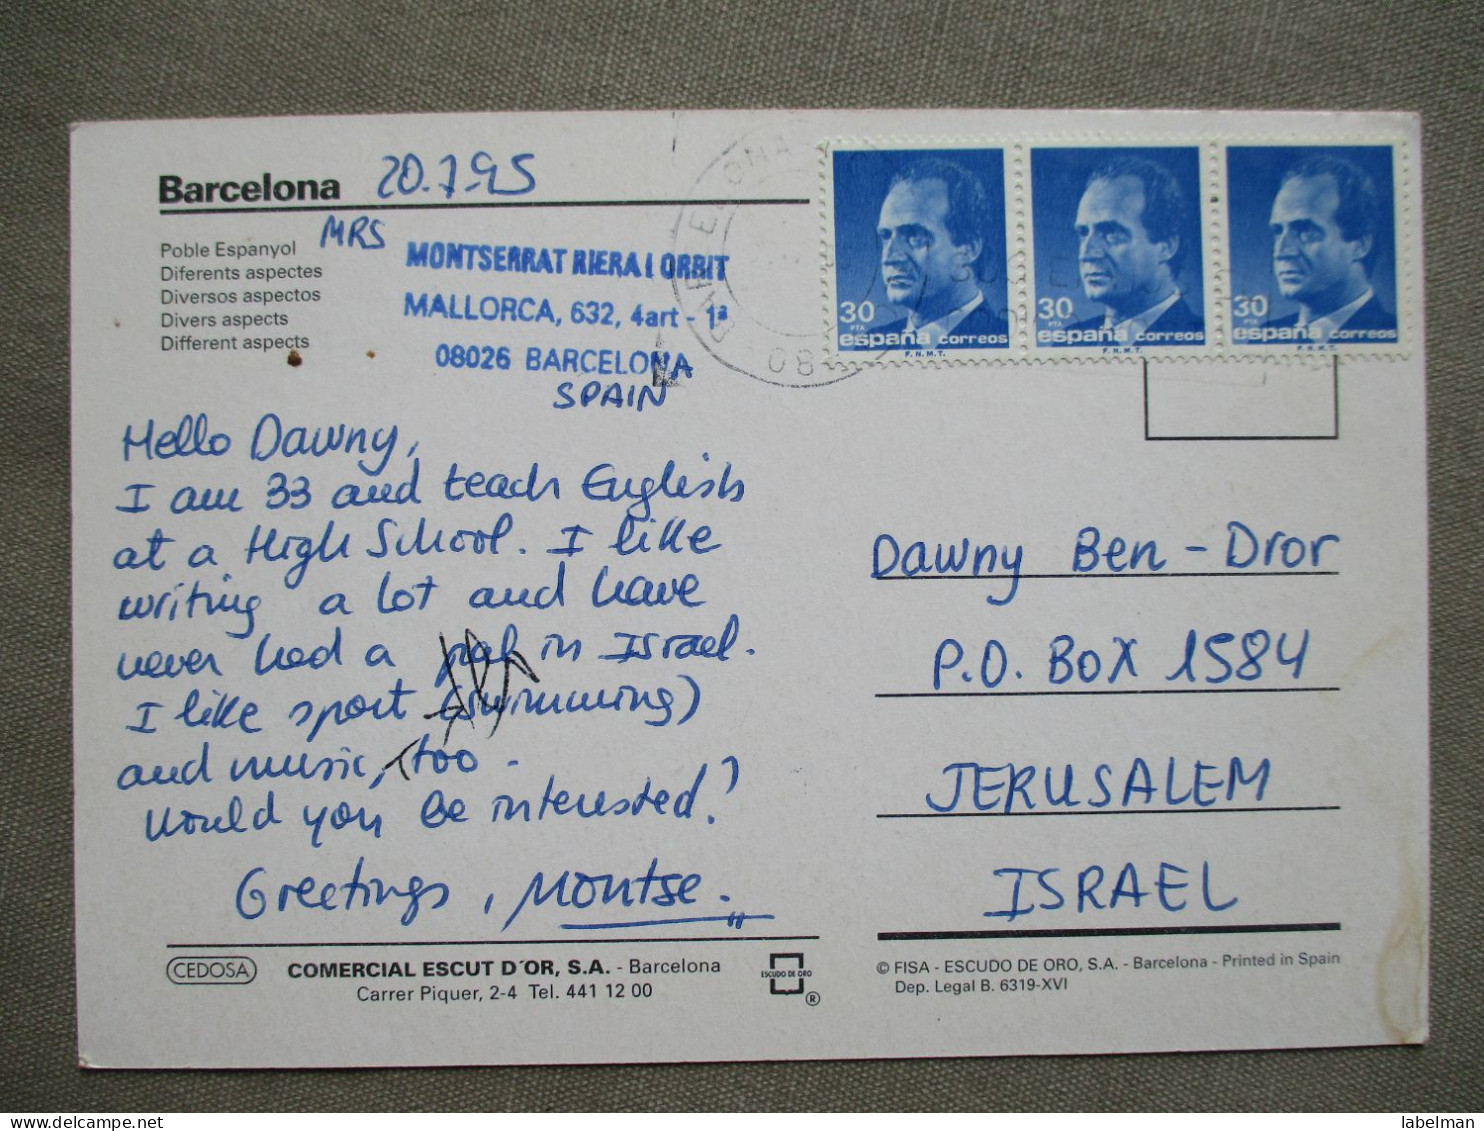 Barcelona 20.7.95
Poble Espanyol
Diferents aspectes
Diversos aspectos
Divers aspects
Different aspects
MRS
MONTSERRAT RIERA I ORBIT
MALLORCA, 632, 4art - 1ª
08026 BARCELONA
SPAIN
Hello Dawny,
I am 33 and teach English
at a High School. I like
writing a lot and have
never had a pal in Israel.
I like sport (swimming)
and music, too.
Would you be interested?
Greetings, Montse.
CEDOSA
COMERCIAL ESCUT D'OR, S.A. - Barcelona
Carrer Piquer, 2-4 Tel. 441 12 00
ESCUDO DE ORO
®
30 PTA
españa correos
F.N.M.T.
30 PTA
españa correos
F.N.M.T.
30 PTA
españa correos
F.N.M.T.
BARCELONA
08
Dawny Ben-Dror
P.O. BOX 1584
JERUSALEM
ISRAEL
© FISA - ESCUDO DE ORO, S.A. - Barcelona - Printed in Spain
Dep. Legal B. 6319-XVI
delcampe.net
labelman